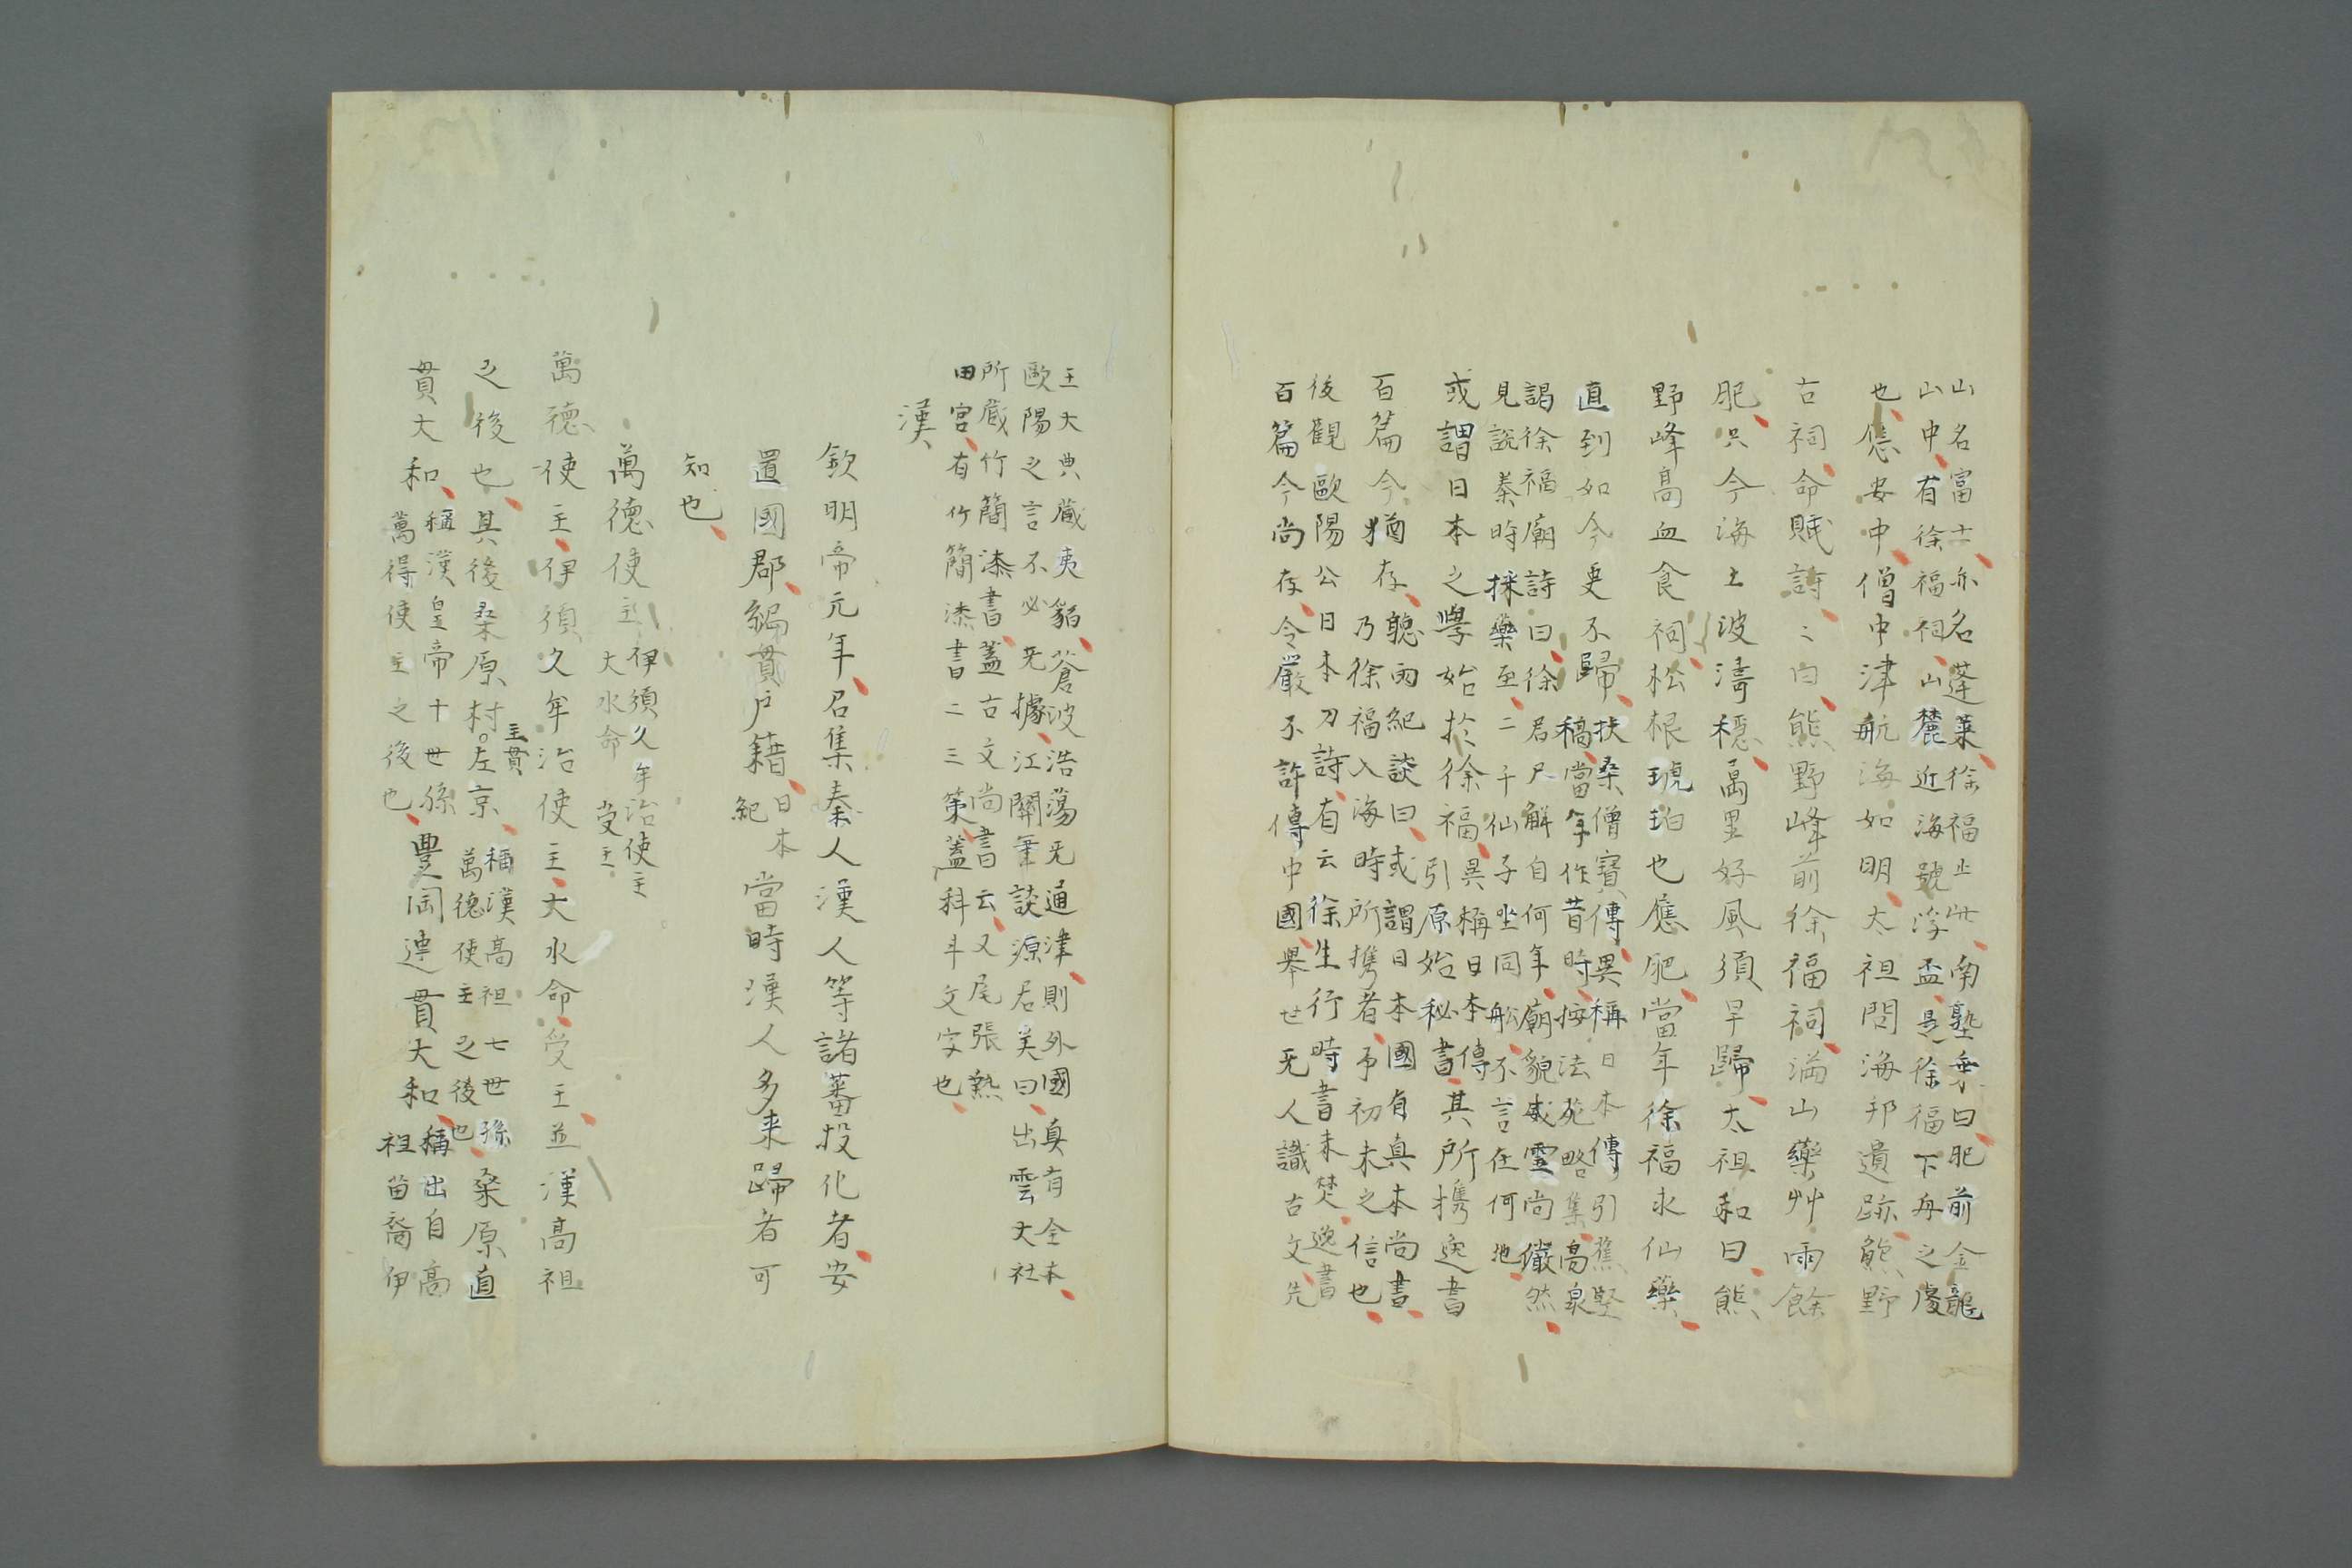 山名富士、亦名蓬莱、徐福止此、南塾乗曰、肥前金龍
山中、有徐福祠、山麓近海號浮盃、是徐福下舟之處
也、應安中、僧中津航海如明、太祖問海邦遺跡、熊野
古祠、命賦詩、〻曰、熊野峰前徐福祠、満山藥艸雨餘
肥、只今海上波濤穏、萬里好風須早歸、太祖和曰、熊
野峰髙血食祠、松根琥珀也應肥、當年徐福求仙藥、
直到如今更不歸、扶桑僧寶傳、異稱日本傳引蕉堅
稿、當年作昔時、按法苑略集、髙泉
謁徐福廟詩曰、徐君尸解自何年、廟貌威靈尚儼然、
見説秦時採藥至、二千仙子坐同舩、不言在何地、
或謂日本之學始於徐福、異稱日本傳
引原始秘書、其所携逸書
百篇今猶存、聽雨紀談曰、或謂日本國有真本尚書、
乃徐福入海時所携者、予初未之信也、
後觀歐陽公日本刀詩、有云徐生行時書未焚、逸書
百篇今尚存、令嚴不許傳中國、舉世旡人識古文、先
王大典藏夷貊、蒼波浩蕩旡通津、則外國真有全本、
歐陽之言不必旡據、江關筆談源君美曰、出雲大社
所藏竹簡漆書、蓋古文尚書云、又尾張熱
田宮、有竹簡漆書二三策、蓋科斗文字也、
漢
欽明帝元年、召集秦人漢人等諸蕃投化者、安
置國郡、編貫戸籍、日本
紀
當時漢人多来歸者可
知也、
萬德使主 伊須久牟治使主
大水命 受主
萬德使主、伊須久牟治使主、大水命、受王、並漢髙祖
之後也、其後桑原村主貫左京、稱漢髙祖七世孫
萬德使主之後也、
桑原直
貫大和、稱漢皇帝十世孫
萬得使主之後也、
豊岡連貫大和、稱出自髙
祖苗裔伊